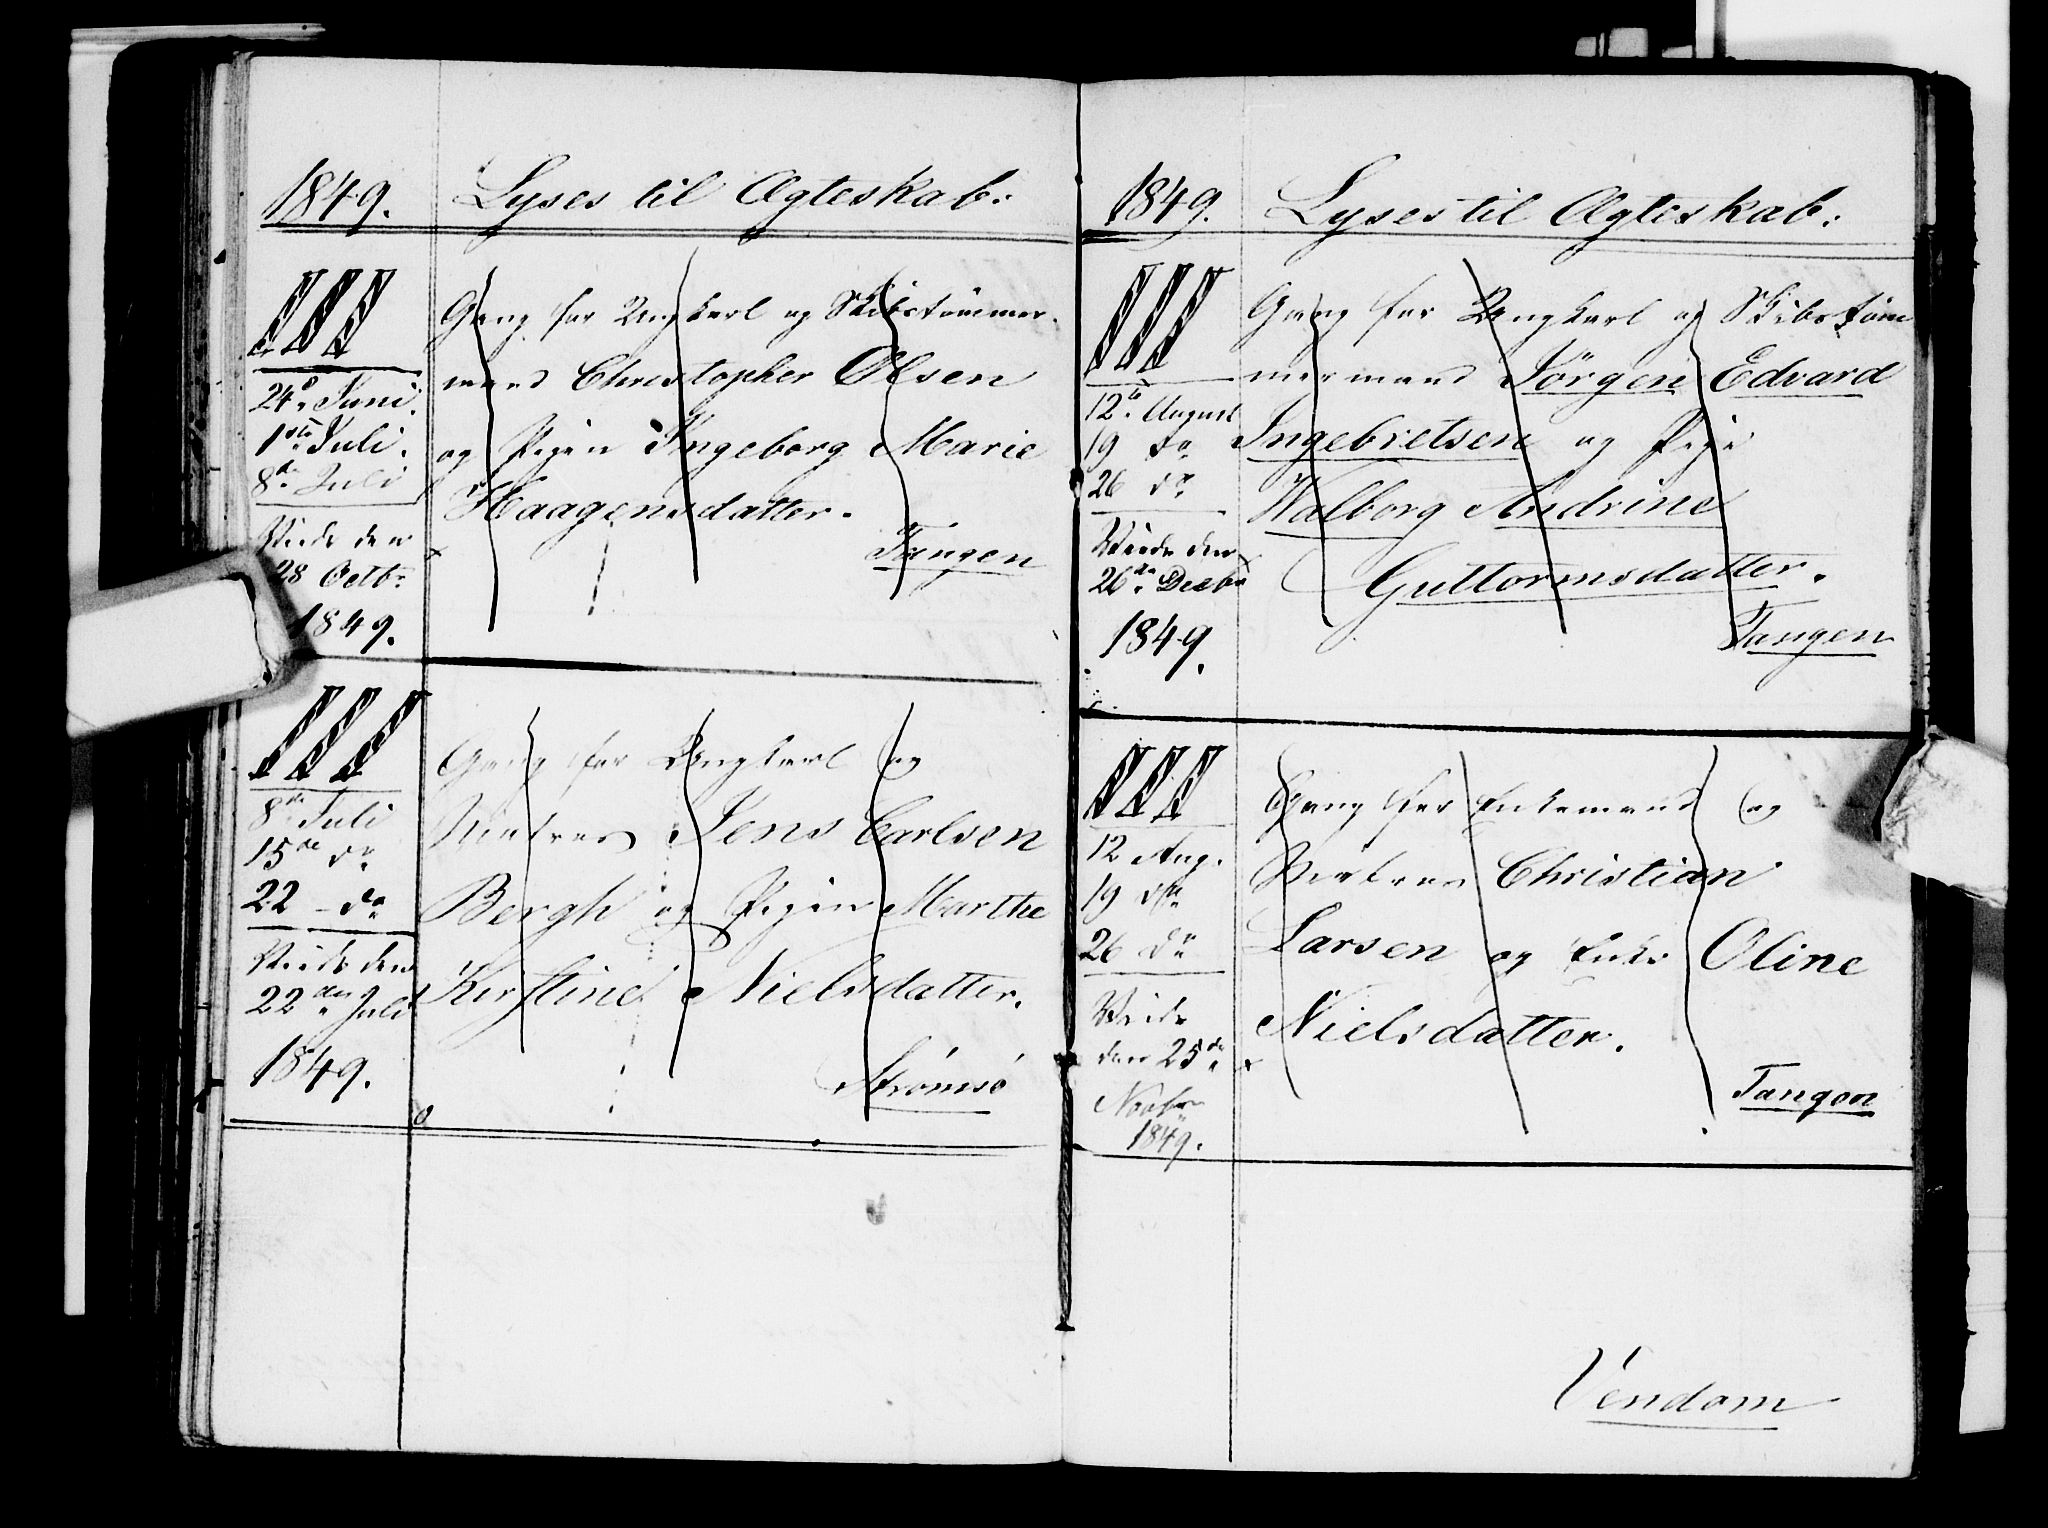 1849. Lyses til Ægteskab:
24de Juni.
1ste Juli.
8de Juli
Viede den
28 Octb:
1849.
Gang for Ungkarl og Skibstömmer-
mand Christopher Olsen
og Pigen Ingeborg Marie
Haagensdatter.
Tangen
8de Juli
15de do
22 - do
Viede den
22den Juli
1849.
Gang for Ungkarl og
Matros Jens Carlsen
Bergh og Pigen Marthe
Kirstine Nielsdatter.
Strömsö
1849. Lyses til Ægteskab:
12te August
19 do
26 do
Viede den
26de Decbr
1849.
Gang for Ungkarl og Skibstöm
mermand Jörgen Edvard
Ingebretsen og Pige
Walborg Andrine
Guttormsdatter.
Tangen
12 Aug.
19 do
26 do
Viede
den 25de
Novbr
1849.
Gang for Enkemand og
Matros Christian
Larsen og Enke Oline
Nielsdatter.
Tangen
Vendom